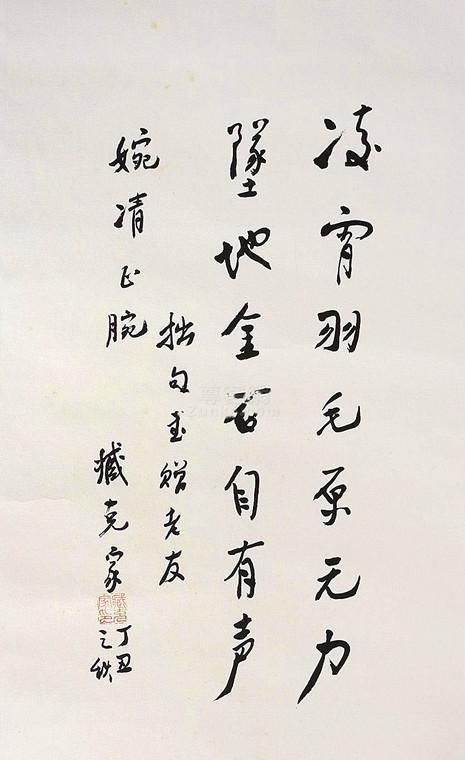 凌宵羽毛原无力
墜地金石自有声
拙句书赠老友
婉清正腕
臧克家
丁丑
之秋